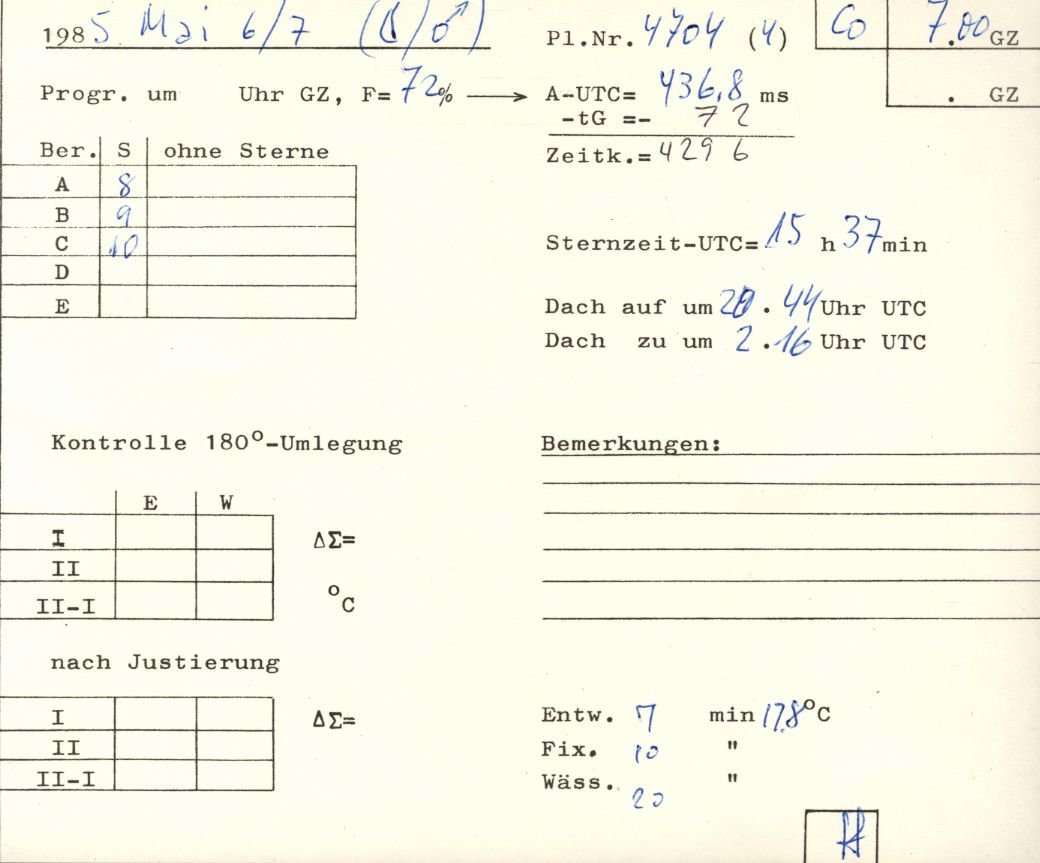 1985 Mai 6/7 (☾/♂) Pl.Nr. 4704 (4) Co 7.00 GZ
Progr. um Uhr GZ, F= 72% → A-UTC= 436,8 ms . GZ
-tG =- 7 2
Ber. S ohne Sterne Zeitk.= 429 6
A 8
B 9
C 10
Sternzeit-UTC= 15 h 37 min
D
E
Dach auf um . 44 Uhr UTC
Dach zu um 2 . 16 Uhr UTC
Kontrolle 180°-Umlegung Bemerkungen:
E W
I ΔΣ=
II
II-I °C
nach Justierung
I ΔΣ= Entw. 7 min 17,8 °C
II Fix. 10 "
II-I Wäss. 20 "